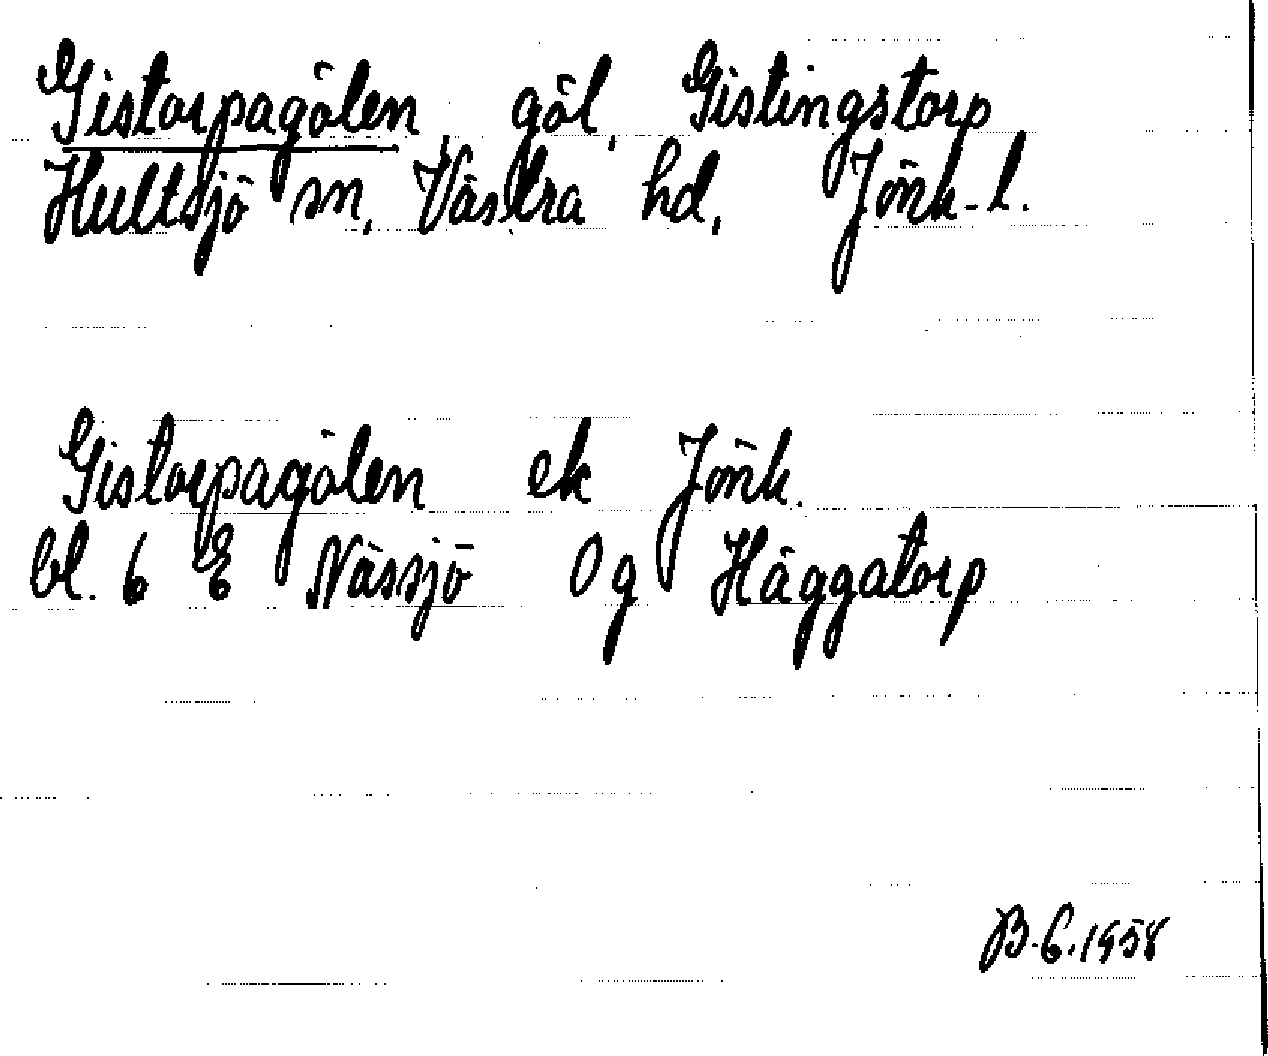 Gistorpagölen, göl, Gistingstorp
Hultsjö sn, Västra hd, Jönk. l.
Gistorpagölen ek Jönk.
bl. 6 E Nässjö 0 g Häggatorp
B.E.1958